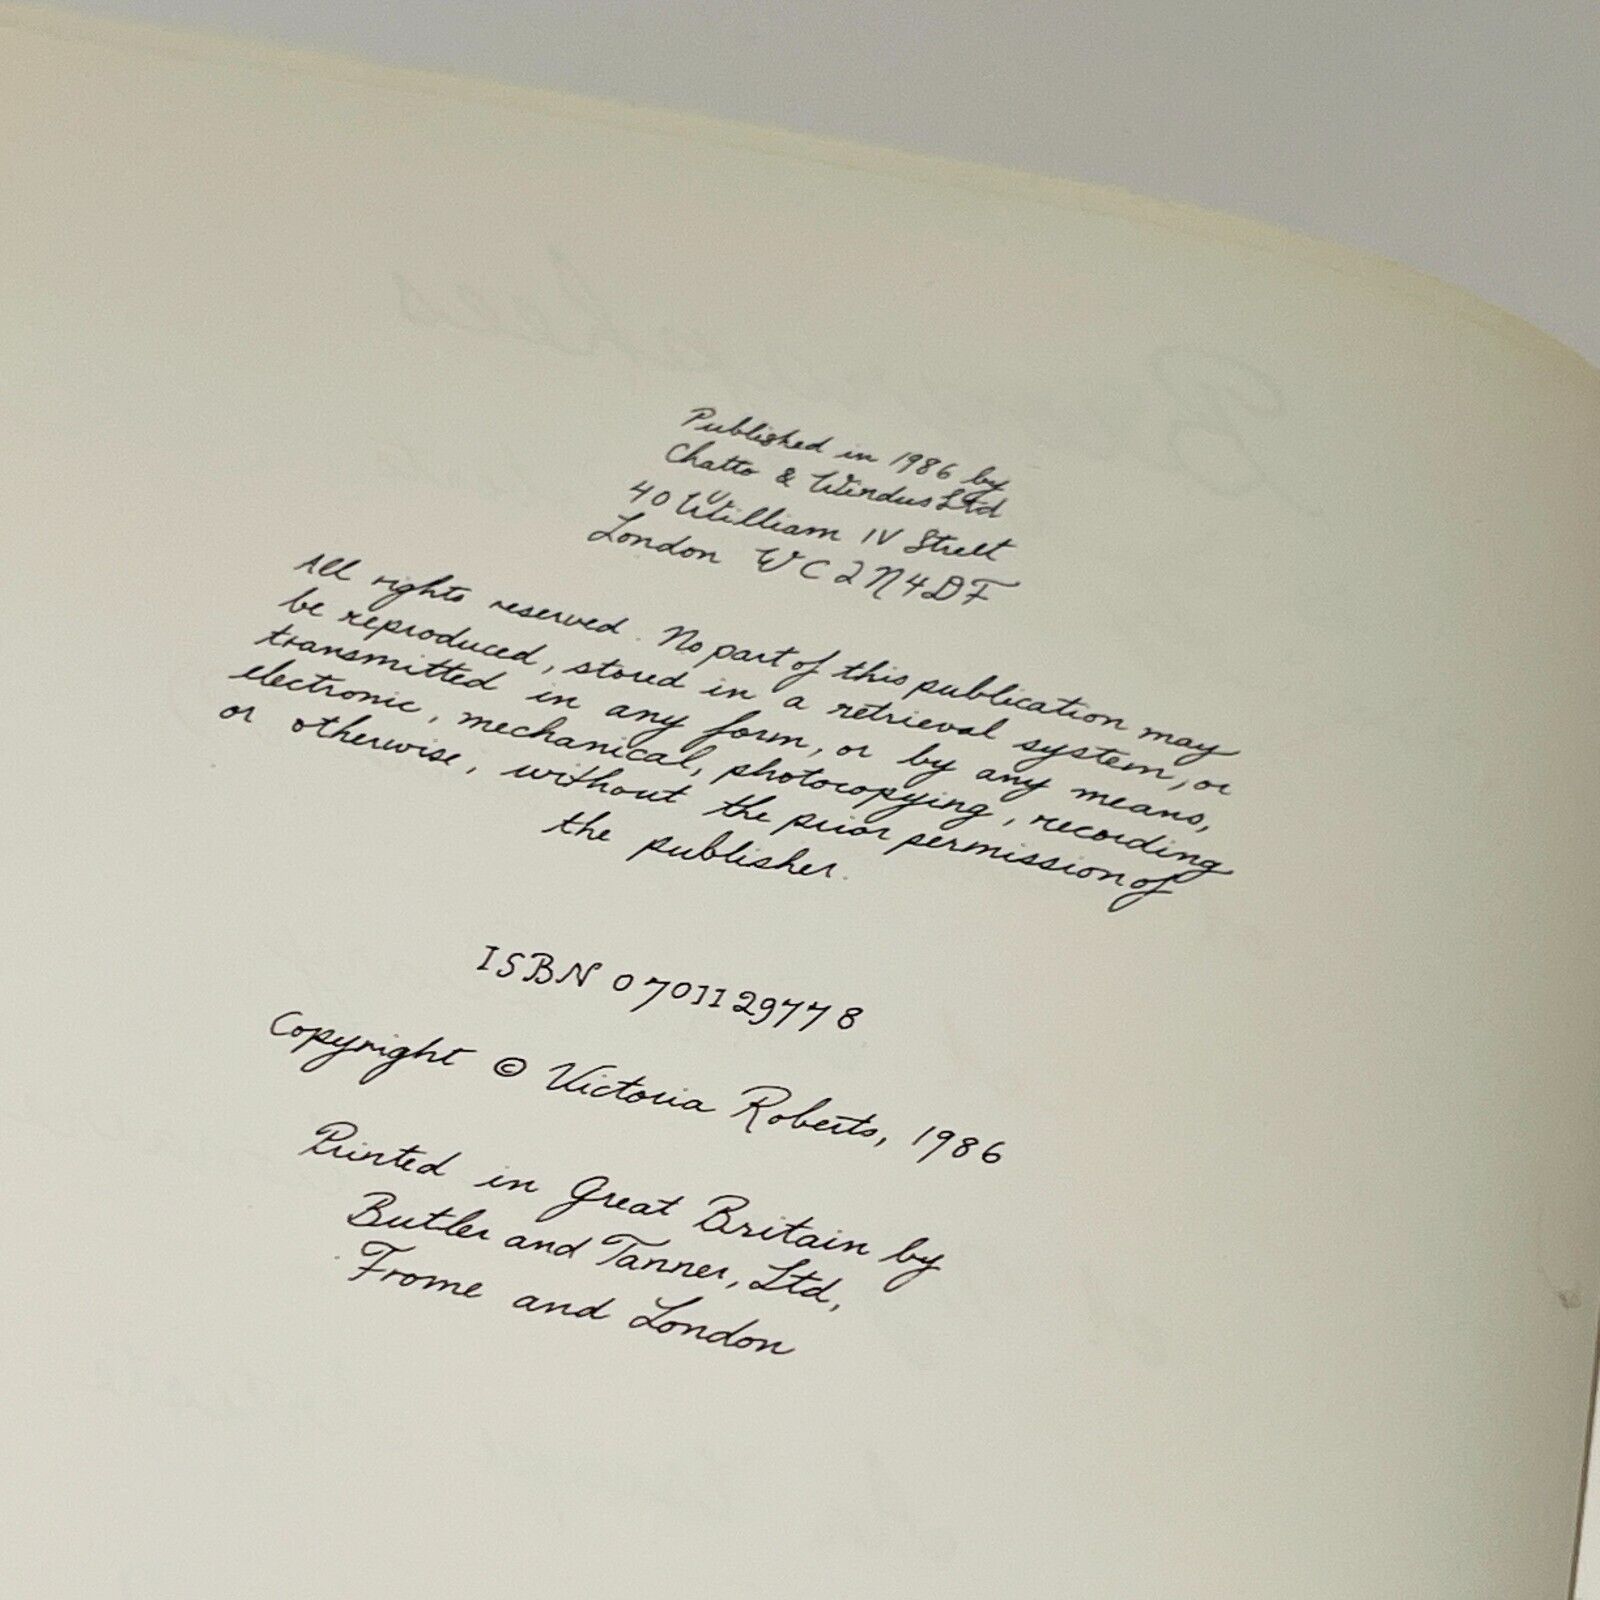 Published in 1986 by
Chatto & Windus Ltd
40 William IV Street
London WC2N4DF
All rights reserved. No part of this publication may
be reproduced, stored in a retrieval system, or
transmitted in any form, or by any means,
electronic, mechanical, photocopying, recording
or otherwise, without the prior permission of
the publisher.
ISBN 0 701129778
Copyright © Victoria Roberts, 1986
Printed in Great Britain by
Butler and Tanner, Ltd,
Frome and London